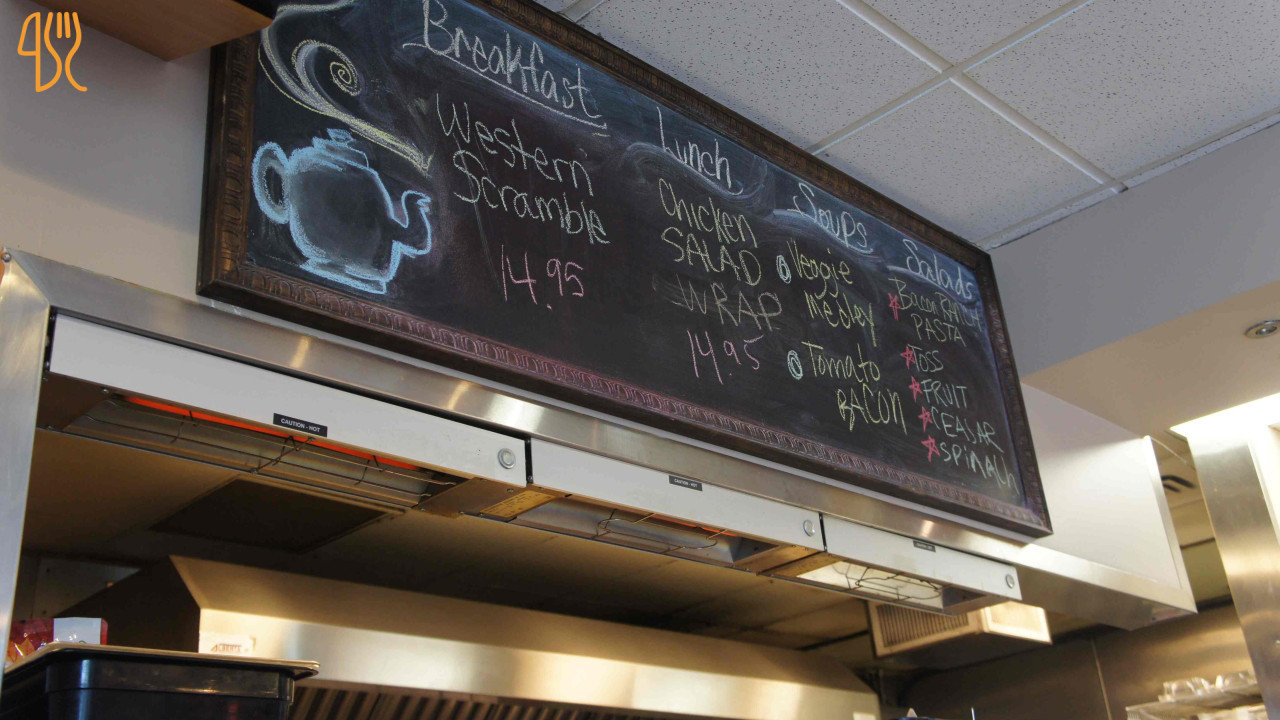 Breakfast
Western
Scramble
14.95
Lunch
Chicken
SALAD
WRAP
14.95
Soups
Veggie
Medley
Tomato
BACON
Salads
Bacon RANCH
PASTA
TOSS
FRUIT
CEASAR
SPINACH
CAUTION - HOT
CAUTION - HOT